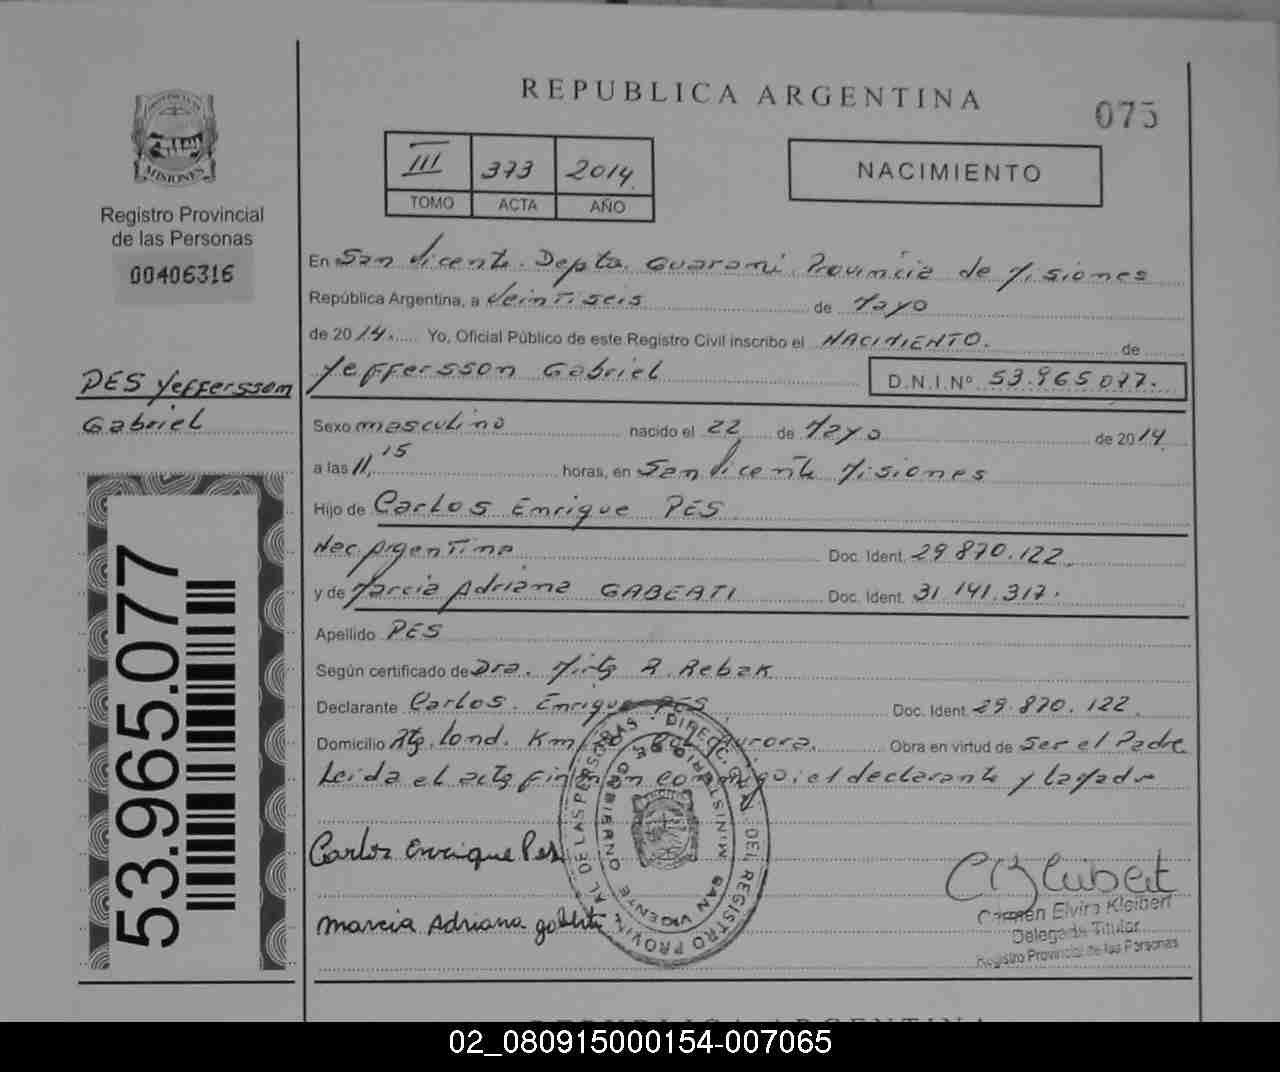 REPUBLICA ARGENTINA
075
PROVINCIA DE
MISIONES
Registro Provincial
de las Personas
00406316
III 373 2014
TOMO ACTA AÑO
NACIMIENTO
En San Vicente. Depto. Guarani. Provincia de Misiones
República Argentina, a Veintiseis de Mayo
de 2014. Yo, Oficial Público de este Registro Civil inscribo el NACIMIENTO. de
Yeffersson Gabriel D.N.I.Nº 53.965.077.
PES Yeffersson
Gabriel
Sexo masculino nacido el 22 de Mayo de 2014
a las 11,15 horas, en San Vicente Misiones
Hijo de Carlos Enrique PES
Nac. Argentina Doc. Ident. 29.870.122
y de Marcia Adriana GABERTI Doc. Ident. 31.141.317.
Apellido PES
Según certificado de Dra. Mirta R. Rebak
Declarante Carlos. Enrique PES. Doc. Ident. 29.870.122.
Domicilio Km Aurora. Obra en virtud de Ser el Padre
Leida el acta firman conmigo, el declarante y la madre
53.965.077
Carlos Enrique Pes
Marcia Adriana gaberti
DIRECC. GRAL. DEL REGISTRO PROVINCIAL DE LAS PERSONAS
MINISTERIO DE GOBIERNO
SAN VICENTE
Carmen Elvira Kleibert
Delegada Titular
Registro Provincial de las Personas
REPUBLICA ARGENTINA
02_080915000154-007065